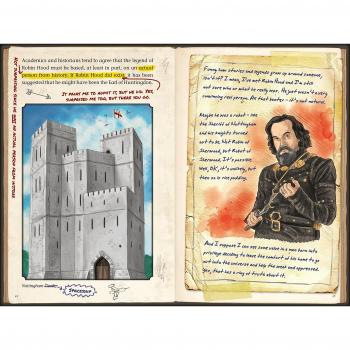 Academics and historians tend to agree that the legend of
Robin Hood must be based, at least in part, on an actual
person from history. If Robin Hood did exist, it has been
suggested that he might have been the Earl of Huntingdon.
It pains me to admit it, but he did. Yes,
surprised me too, but there you go.
Nottingham Castle
Spaceship
Funny how stories and legends grow up around someone,
isn't it? I mean, I've met Robin Hood and I'm still
not sure who or what he really was. He just wasn't very
convincing real person. All that banter – it's not natural.
Maybe he was a robot – like
the Sheriff of Nottingham
and his knights turned
out to be. Not Robin of
Sherwood, but Robot of
Sherwood. It's possible.
Well, OK, it's unlikely, but
then so is rice pudding.
And I suppose I can see some value in a man born into
privilege deciding to leave the comfort of his home to go
out into the universe and help the weak and oppressed.
Yes, that has a ring of truth about it.